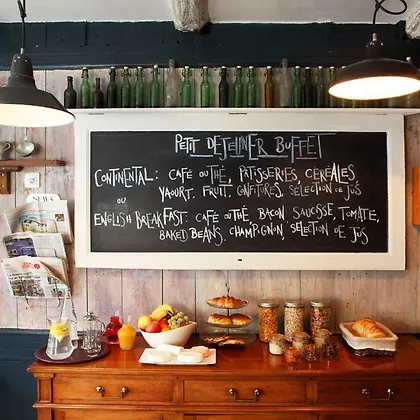 PETIT DEJEUNER BUFFET
CONTINENTAL: CAFÉ OU THÉ, PATISSERIES, CÉRÉALES,
YAOURT, FRUIT, CONFITURES, SÉLECTION DE JUS
OU
ENGLISH BREAKFAST: CAFÉ OU THÉ, BACON SAUCISSE, TOMATE,
BAKED BEANS, CHAMPIGNON, SELECTION DE JUS
NEWS